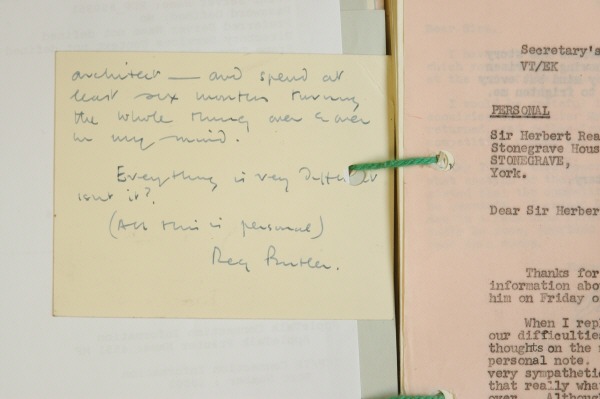 architect — and spend at
least six months turning
the whole thing over & over
in my mind.
Everything is very different
isnt it?
(All this is personal)
Reg Butler.
Secretary's
VT/EK
PERSONAL
Sir Herbert Rea
Stonegrave Hous
STONEGRAVE,
York.
Dear Sir Herber
Thanks for
information abou
him on Friday o
When I repl
our difficulties
thoughts on the
personal note.
very sympathetic
that really what
over. Althoug